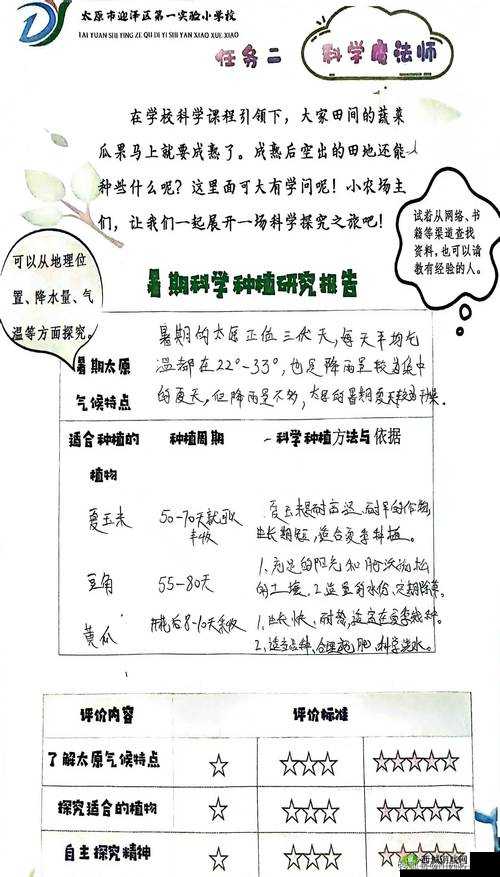 太原市迎泽区第一实验小学校
TAI YUAN SHI YING ZE QU DI YI SHI YAN XIAO XUE XIAO
任务二 科学魔法师
在学校科学课程引领下，大家田间的蔬菜
瓜果马上就要成熟了。成熟后空出的田地还能
种些什么呢？这里面可大有学问呢！小农场主
们，让我们一起展开一场科学探究之旅吧！
试着从网络、书
籍等渠道查找
资料，也可以请
教有经验的人。
可以从地理位
置、降水量、气
温等方面探究。
暑期科学种植研究报告
暑期太原
气候特点
暑期的太原正值三伏天，每天平均气
温都在22°-33°，也是降雨量较为集中
的夏天，但降雨量不多，太原的暑期夏天较为干燥。
适合种植的
植物
种植周期
科学种植方法与依据
夏玉米
50-70天就可以
丰收
夏玉米是耐高温、耐旱的作物，
生长期短，适合夏季种植。
豆角
55-80天
1、充足的阳光和肥沃疏松
的土壤，2、适量的水份，定期除草。
黄瓜
开花后8-10天采收
1、生长快、耐热，适宜在夏季栽种。
2、适当品种、合理施肥、科学浇水。
评价内容
评价标准
了解太原气候特点
☆ ☆☆☆ ☆☆☆☆☆
探究适合的植物
☆ ☆☆☆ ☆☆☆☆☆
自主探究精神
☆ ☆☆☆ ☆☆☆☆☆